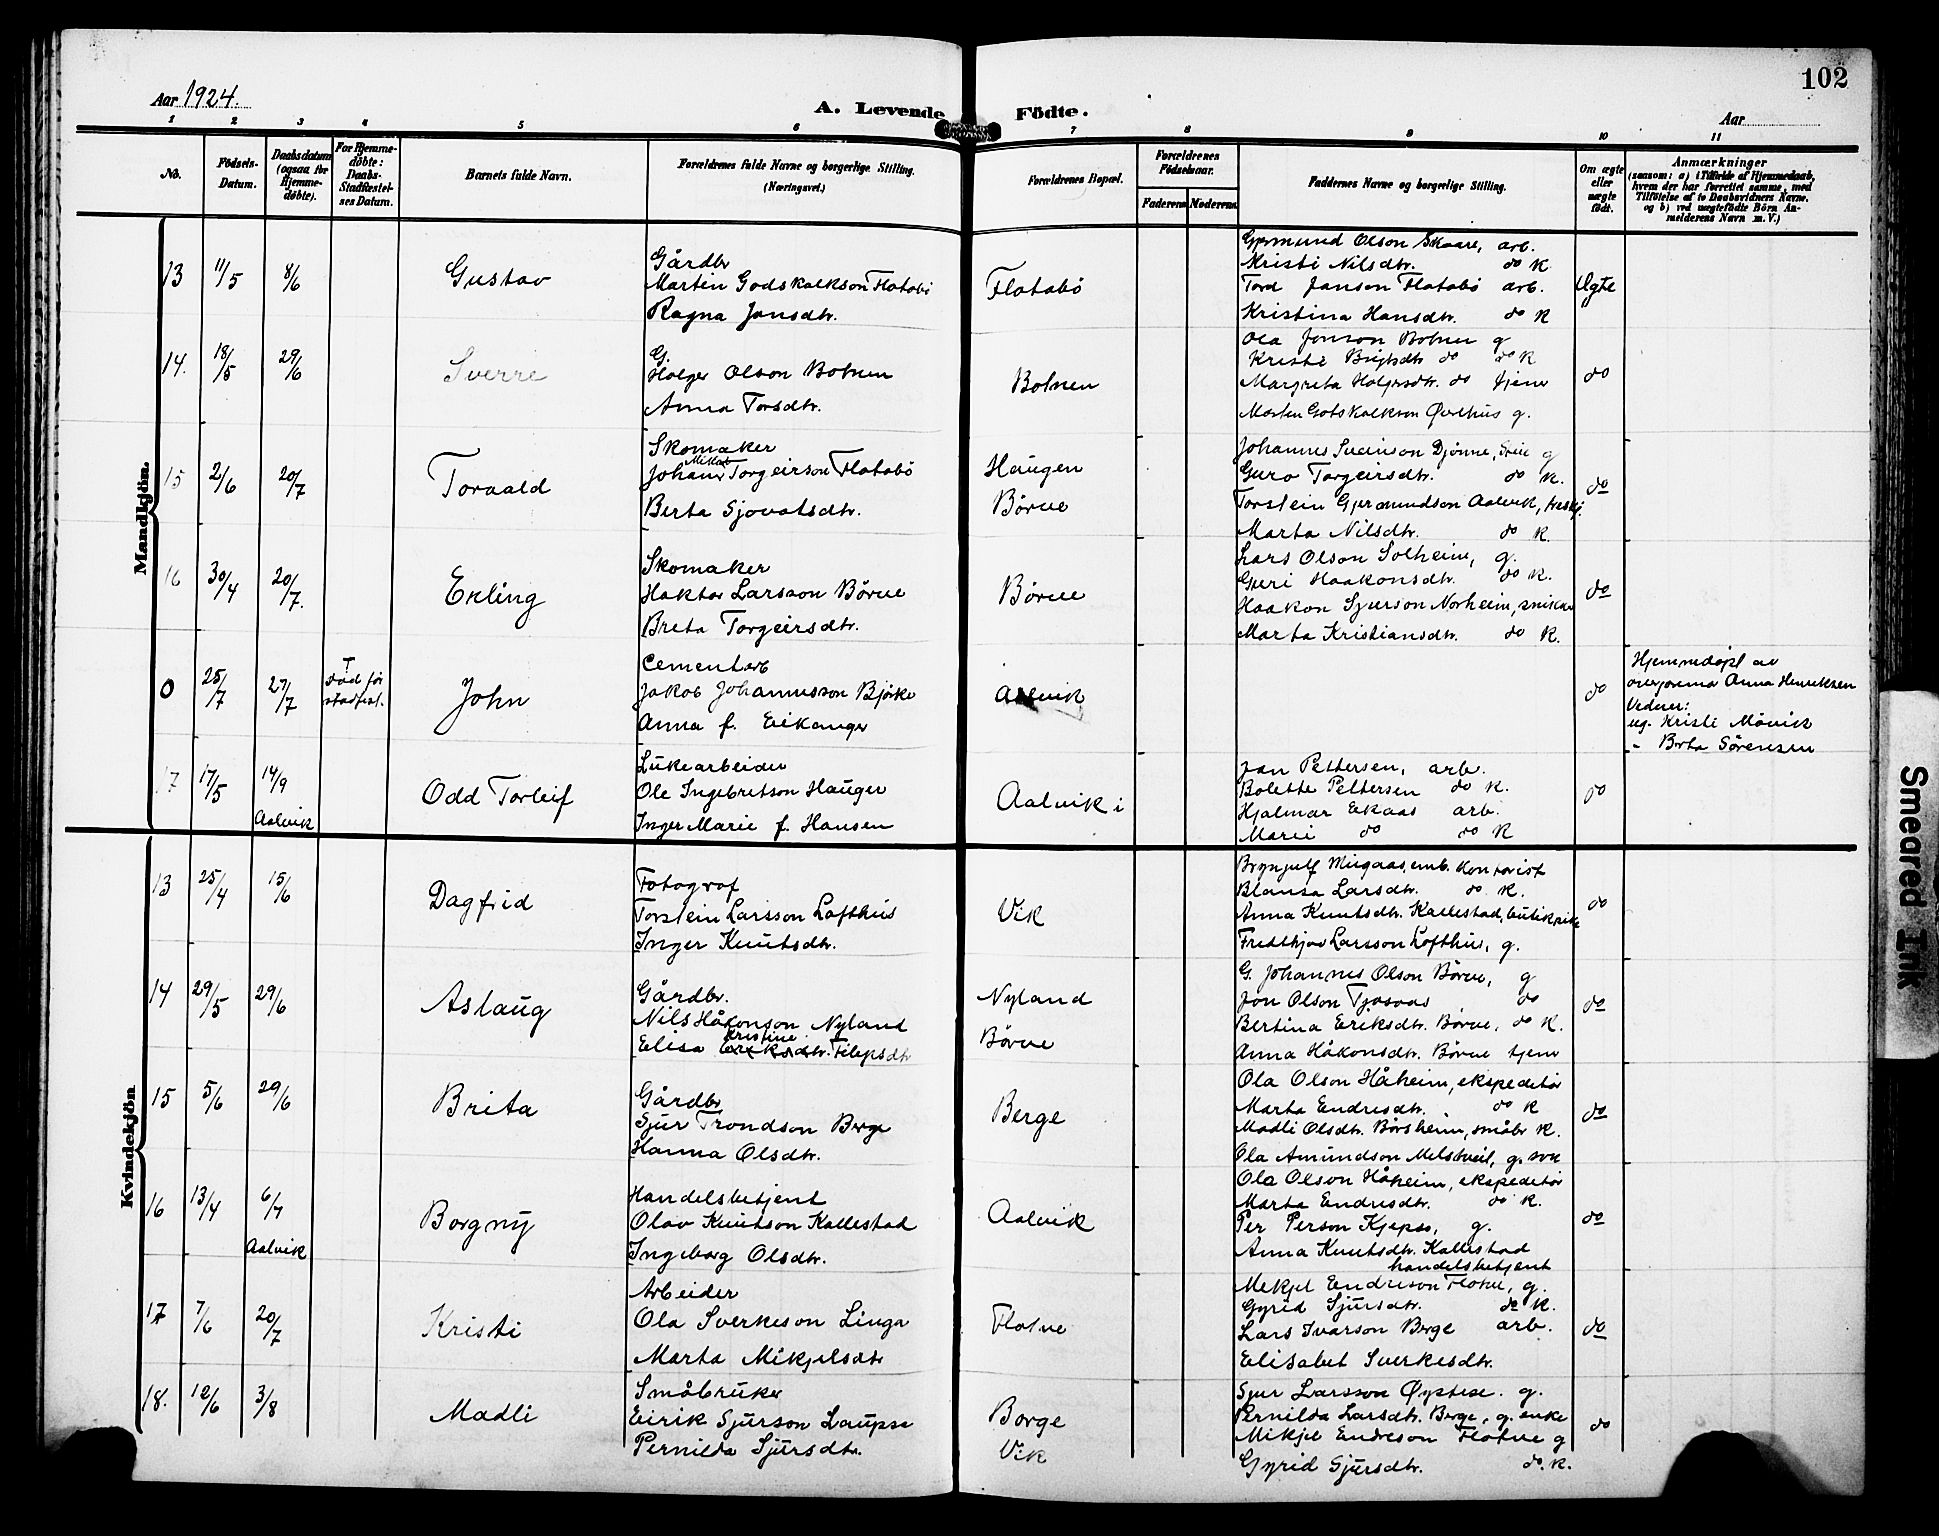 102
Aar 1924.
A. Levende Födte.
Aar
1 2 3 4 5 6 7 8 9 10 11
No.
Födsels-Datum.
Daabsdatum (ogsaa for Hjemme-döbte).
For Hjemme-döbte: Daabs-Stadfæstel-ses Datum.
Barnets fulde Navn.
Forældrenes fulde Navne og borgerlige Stilling. (Næringsvei.)
Forældrenes Bopæl.
Forældrenes Födselsaar.
Faderens Moderens
Faddernes Navne og borgerlige Stilling.
Om ægte eller uægte födt.
Anmærkninger
(saasom: a) i Tilfælde af Hjemmedaab,
hvem der har forrettet samme, med
Tilföielse af to Daabsvidners Navne.
og b) ved uægtefödte Börn An-
melderens Navn m. V.)
Mandkjön.
13 11/5 8/6
Gustav
Gårdbr
Martin Godskalkson Flotabö
Ragna Jonsdtr.
Flatabö
Gjermund Olson Skaare, arb.
Kristi Nilsdtr. do K
Tord Janson Flatabö arb.
Kristina Hansdtr. do K
Ægte
14. 18/5 29/6
Sverre
G.
Holger Olson Botnen
Anna Torsdtr.
Botnen
Ola Jonson Botnen g
Kristi do do K
Margreta Holgersdtr. do tjener
Morten Gotskalkson g.
do
15 2/6 20/7
Torvald
Skomaker
Johannes Torgeirson Flatabö
Berta Sjovatsdtr.
Haugen
Börve
Johannes Svenson Djönne, g
Guro Torgeirsdtr. do K.
Torstein Gjermundson Aalvik,
Marta Nilsdtr. do K.
do
16 30/4 20/7.
Erling
Skomaker
Haktor Larsson Börve
Breta Torgeirsdtr.
Börve
Lars Olson Solheim, g.
Guri Haakonsdtr. do K.
Haakon Sjurson Norheim, snikar
Marta Kristiansdtr. do K.
do
0 25/7 27/7
död før stadfest.
John
Cementarb
Jakob Johannesson Bjørke
Anna f. Eikanger
Aalvik
do
Hjemmedøpt av
Anna Henriksen
ug. Kristi Mövik
" Berta Sörensen
17 17/5 14/9
Aalvik
Odd Torleif
Lukearbeider
Ole Ingebretson Hauger
Inger Marie f. Hansen
Aalvik i
Jan Pettersen, arb.
Bolette Pettersen do K.
Hjalmar Ekaas arb.
Marie do do K
do
Kvindekjön
13 25/4 15/6
Dagfrid
Fotograf
Torstein Larsson Lofthus
Inger Knutsdtr.
Vik
Brynjulf emb. Kontorist
Blansa Larsdtr. do K.
Anna Knutsdtr. Kallestad,
Fridthjov Larsson Lofthus, g.
do
14 29/5 29/6
Aslaug
Gårdbr.
Nils Håkonson Nyland
Elisa Kristine Eriksdtr. Filipsdtr
Nyland
Börve
G. Johannes Olson Börve, g
Jon Olson Tjosaas do
Bertina Eriksdtr. Börve, do K.
Anna Håkonsdtr. Börve tjener
do
15 5/6 29/6
Brita
Gårdbr
Sjur Trondson Berge
Hanna Olsdtr.
Berge
Ola Olson Håheim, ekspeditör
Marta Endresdtr. do K
Madli Olsdtr. Börsheim, småbr K.
Ola Amundson g.
do
16 13/4 6/7
Aalvik
Borgny
Handelsbetjent
Olav Knutson Kallestad
Ingeborg Olsdtr.
Aalvik
Ola Olson Håheim, ekspeditör
Marta Endresdtr. do K.
Per Person Kjepso, g.
Anna Knutsdtr. Kallestad
handelsbetjent
do
17 7/6 20/7
Kristi
Arbeider
Ola Sverkeson Linga
Marta Mikjelsdtr
Flotve
Mikjel Endreson Flotve, g.
Gyrid Sjursdtr. do K.
Lars Ivarson Berge arb.
Elisabet Sverkesdtr.
do
18. 12/6 3/8
Madli
Småbruker
Eirik Sjurson Laupsa
Pernilda Sjursdtr.
Borge
Vik
Sjur Larsson Öystese. g.
Pernilda Larsdtr. Berge, g. enke
Mikjel Endreson Flotve g
Gyrid Sjursdtr. do. K.
do
Smeared Ink